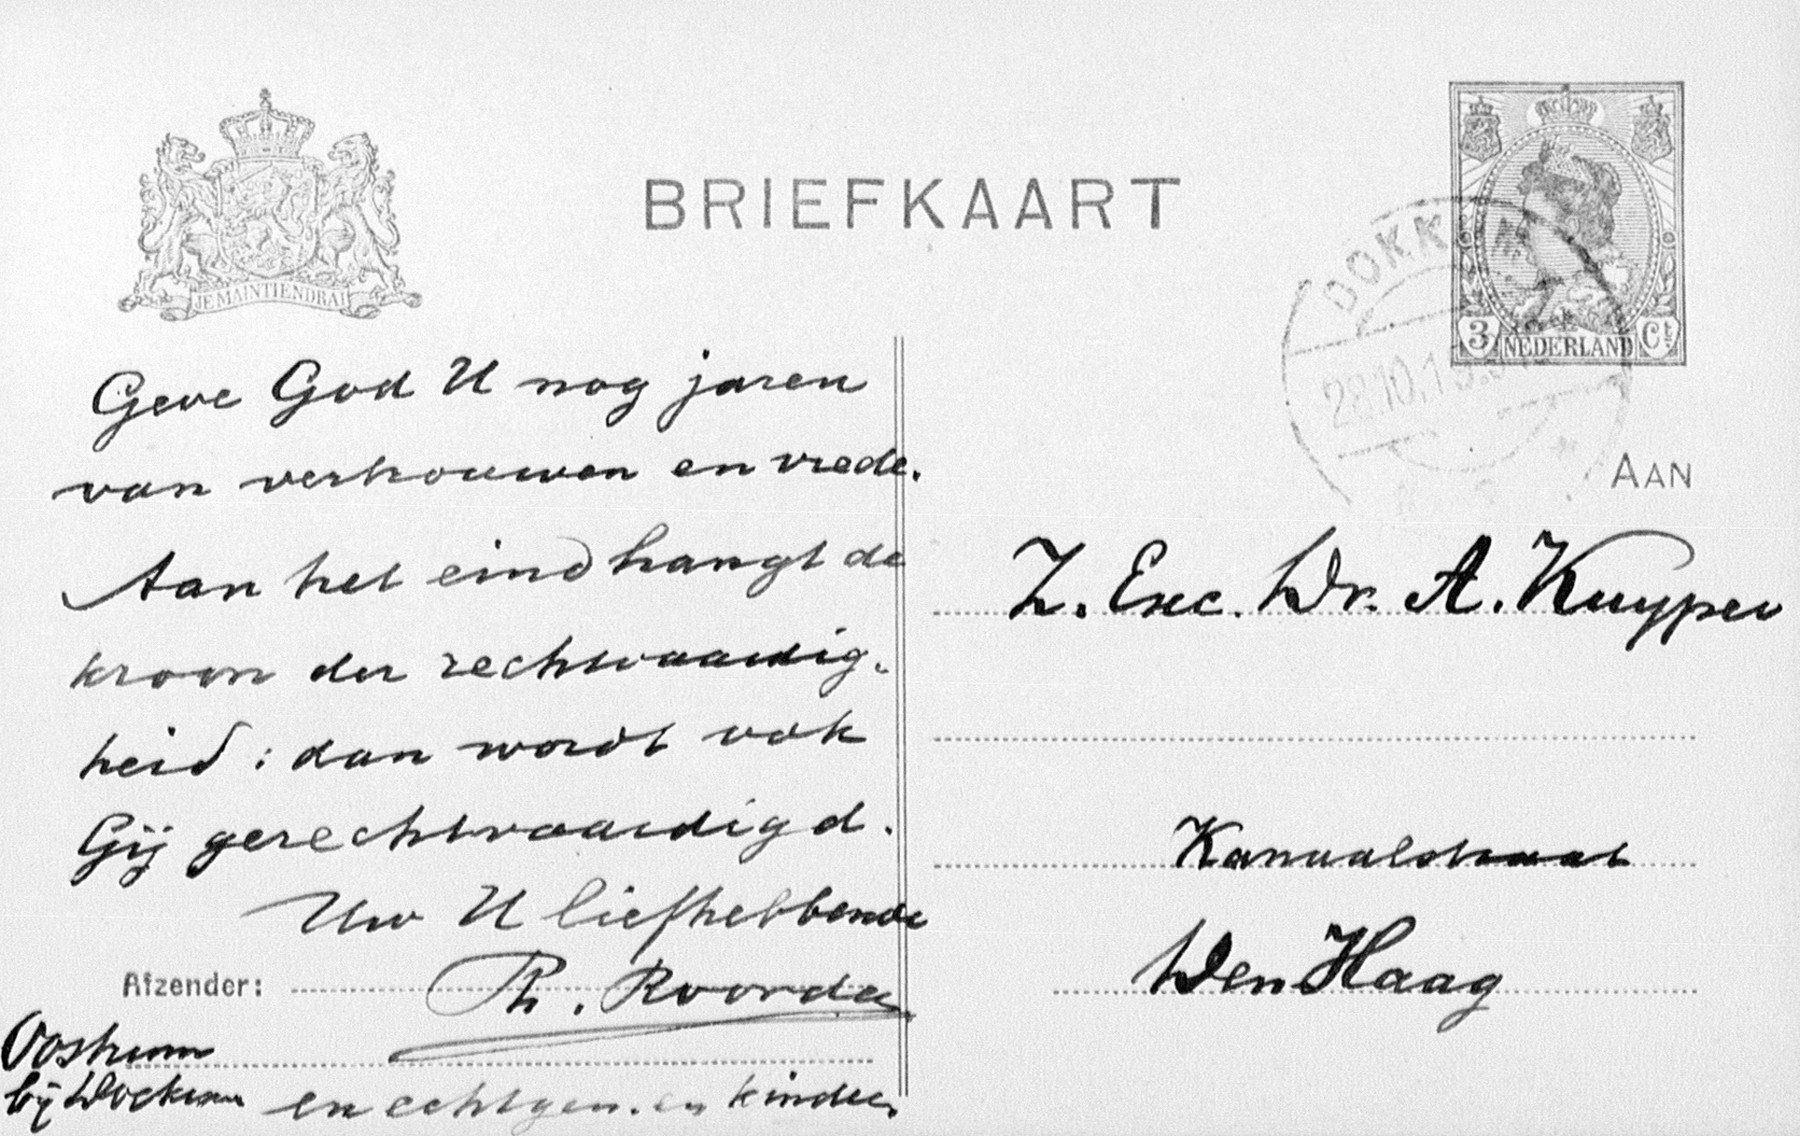 JE MAINTIENDRAI
BRIEFKAART
3 Ct
NEDERLAND
DOKKUM
28.10.1
Geve God U nog jaren
van verhouwen en vrede.
Aan het eind hangt de
kroon der rechtvaardig-
heid: dan wordt ook
Gij gerechtvaardigd.
Uw U liefhebbende
Afzender:
Th. Roorda
Oostrum
bij Dockum
en echtgen. en kinder.
AAN
Z. Exc. Dr. A. Kuyper
Kanaalstraat
Den Haag